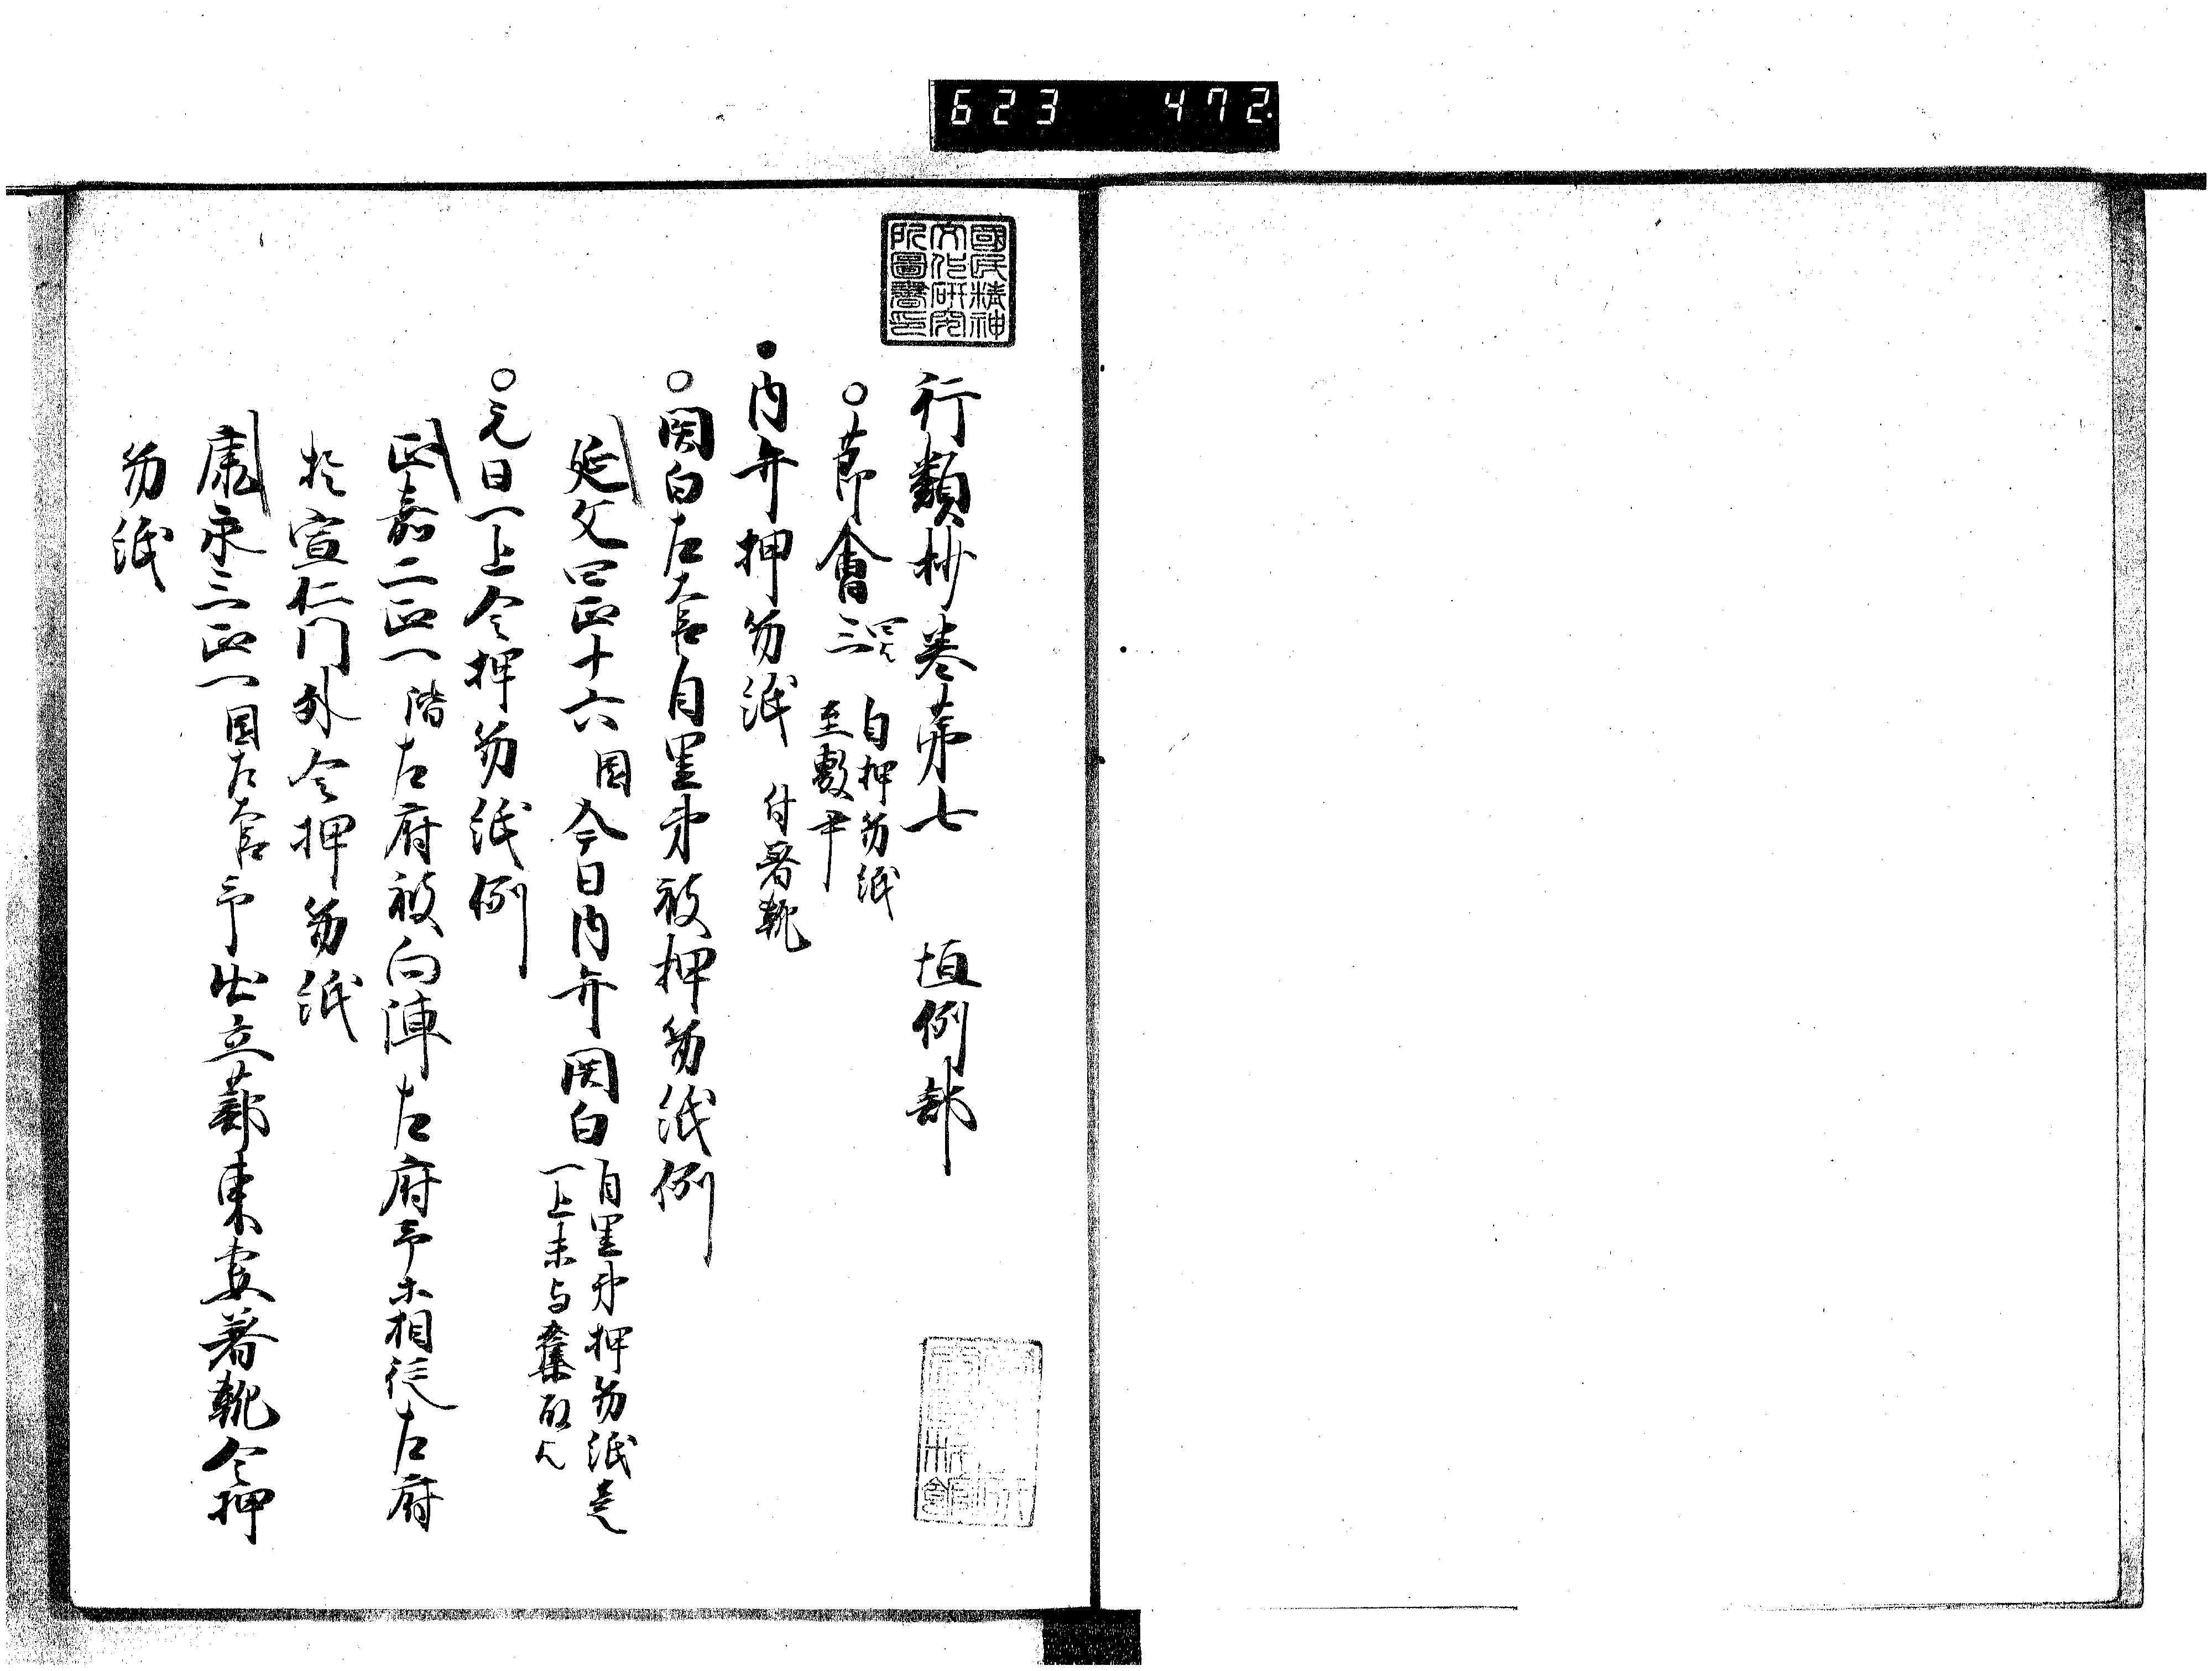 623 472
國民精神
文化研究
所圖書印
行類抄巻第七 恒例部
○節會三 自押笏紙
至敷尹
・内弁押笏紙 付着靴
○関白左大臣自里第被押笏紙例
延文四正十六園今日内弁関白 自里第押笏紙是
一上未与奪故也
○元日一上令押笏紙例
正嘉二正一階左府被向陣左府予等相従左府
於宣仁門外令押笏紙
康永三正一園左大臣予出立蔀東妻著靴令押
笏紙